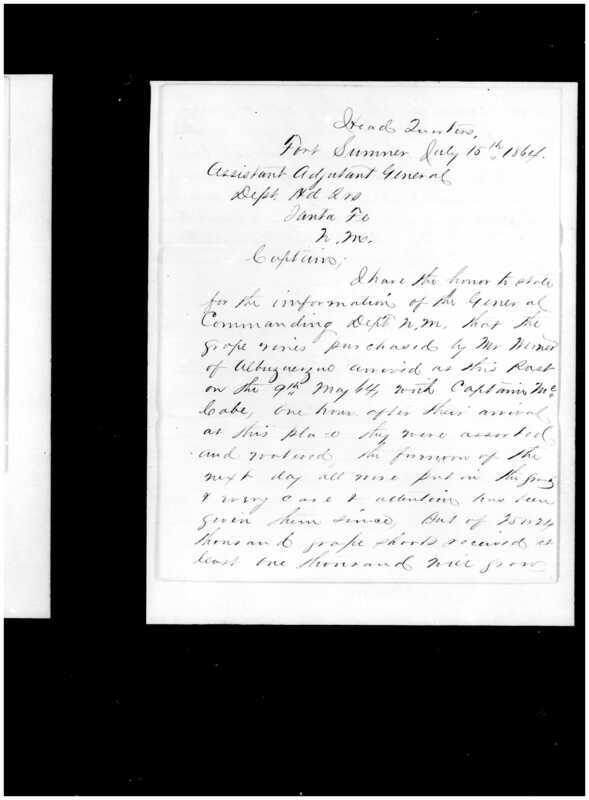 Head Quarters,
Fort Sumner July 15th 1864.
Assistant Adjutant General
Dept. Hd Qrs
Santa Fe
N. M.
Captain;
I have the honor to state
for the information of the General
Commanding Dept N. M. that the
grape vines purchased by Mr
of Albuquerque arrived at this Post
on the 9th May 64, with Captain Mc
Cabe, One hour after their arrival
at this place they were assorted
and watered, the forenoon of the
next day all were put in the
& every care & attention has been
given them since, Out of
thousand grape shoots received at
least one thousand will grow